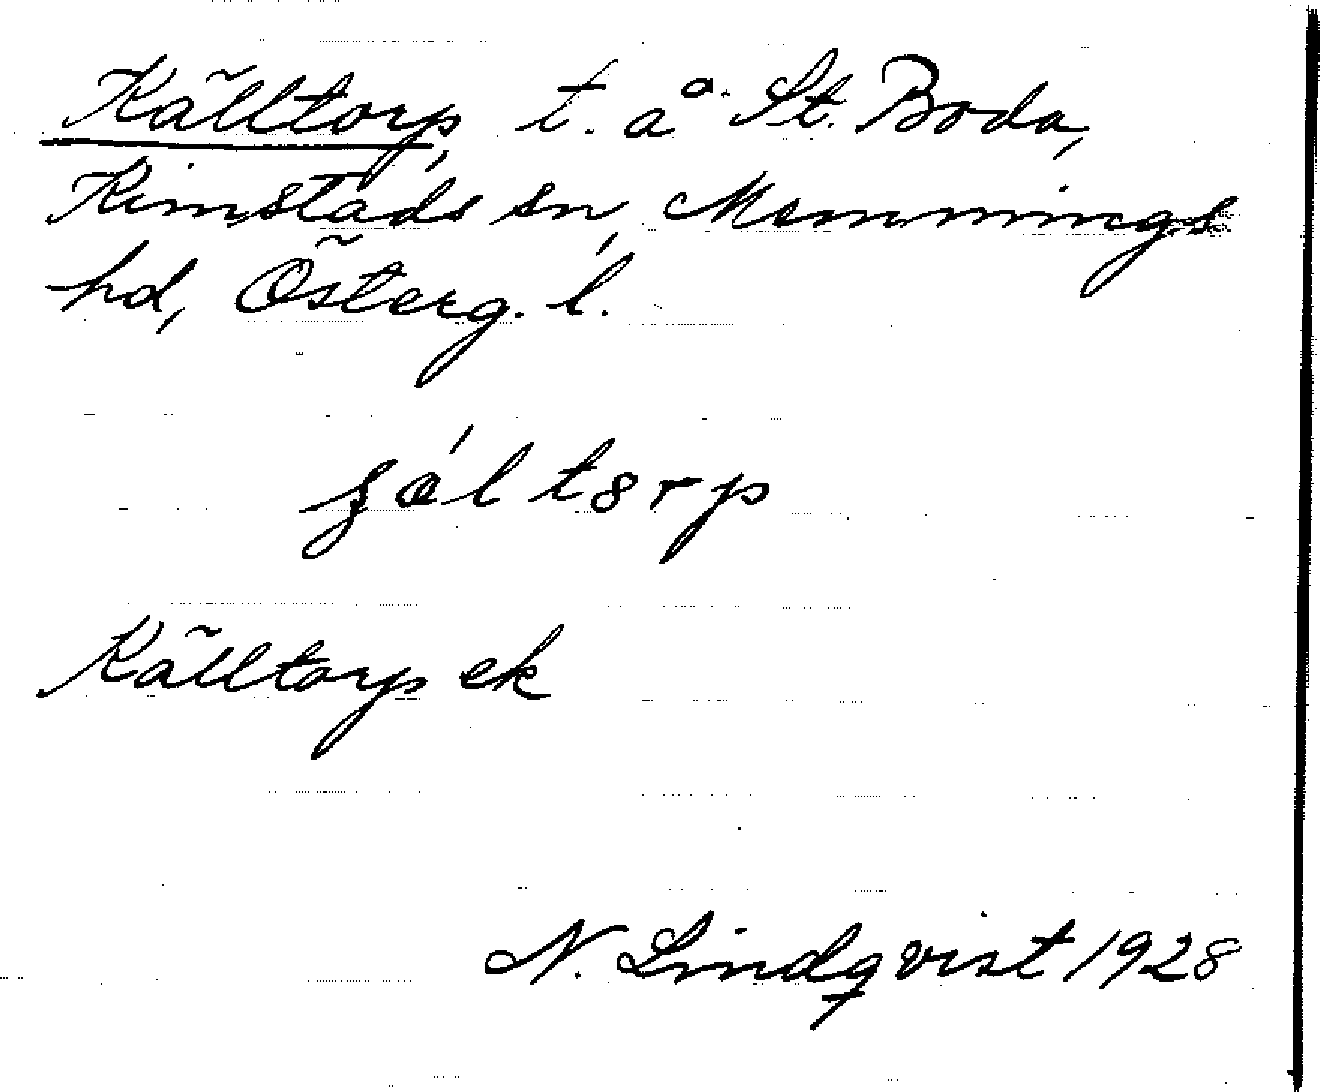 Källtorp, t. å St. Boda,
Kimstads sn, Memmings
hd, Österg. l.
Källtorp ek
N. Lindqvist 1928